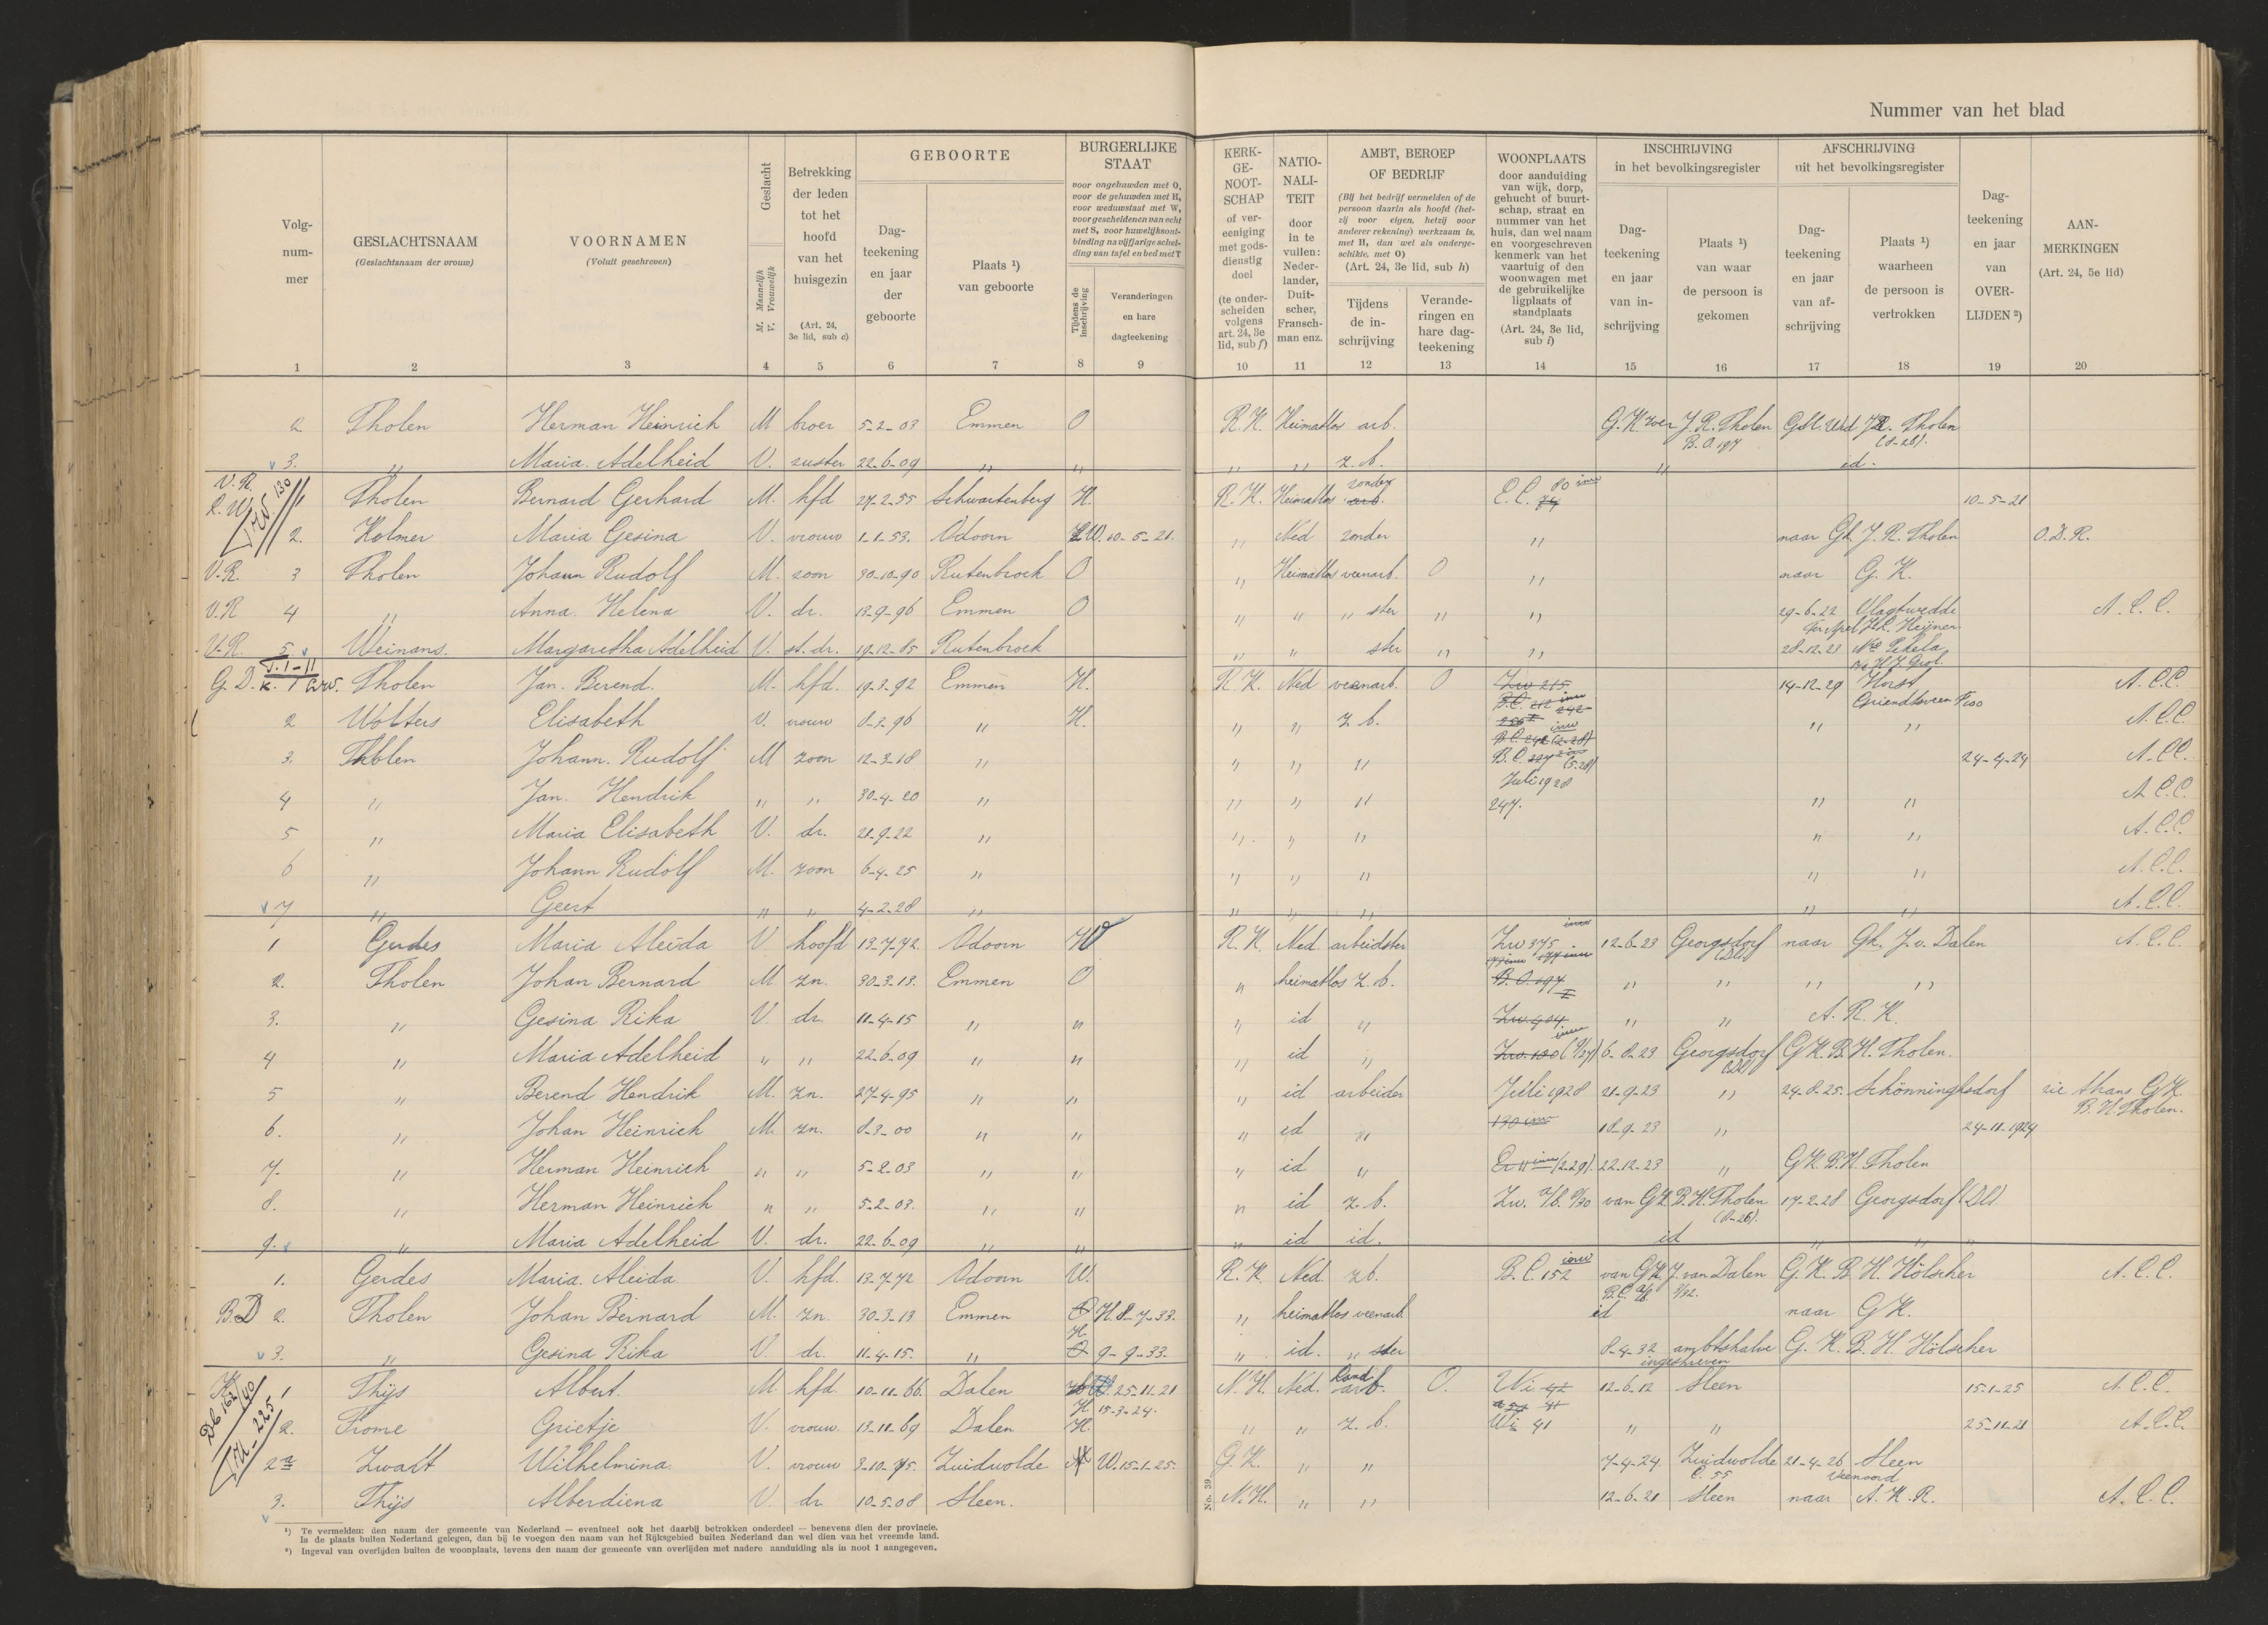 Nummer van het blad
Volg-
num-
mer
GESLACHTSNAAM
(Geslachtsnaam der vrouw)
VOORNAMEN
(Voluit geschreven)
Geslacht
M. Mannelijk
V. Vrouwelijk
Betrekking
der leden
tot het
hoofd
van het
huisgezin
(Art. 24,
3e lid, sub c)
GEBOORTE
Dag-
teekening
en jaar
der
geboorte
Plaats ¹)
van geboorte
BURGERLIJKE
STAAT
voor ongehuwden met O,
voor de gehuwden met H,
voor weduwstaat met W,
voor gescheidenen van echt
met S, voor huwelijksont-
binding na vijfjarige schei-
ding van tafel en bed met T
Tijdens de
inschrijving
Veranderingen
en hare
dagteekening
KERK-
GE-
NOOT-
SCHAP
of ver-
eeniging
met gods-
dienstig
doel
(te onder-
scheiden
volgens
art. 24, 3e
lid, sub f)
NATIO-
NALI-
TEIT
door
in te
vullen:
Neder-
lander,
Duit-
scher,
Fransch-
man enz.
AMBT, BEROEP
OF BEDRIJF
(Bij het bedrijf vermelden of de
persoon daarin als hoofd (het-
zij voor eigen, hetzij voor
anderer rekening) werkzaam is,
met H, dan wel als onderge-
schikte, met O)
(Art. 24, 3e lid, sub h)
Tijdens
de in-
schrijving
Verande-
ringen en
hare dag-
teekening
WOONPLAATS
door aanduiding
van wijk, dorp,
gehucht of buurt-
schap, straat en
nummer van het
huis, dan wel naam
en voorgeschreven
kenmerk van het
vaartuig of den
woonwagen met
de gebruikelijke
ligplaats of
standplaats
(Art. 24, 3e lid,
sub i)
INSCHRIJVING
in het bevolkingsregister
Dag-
teekening
en jaar
van in-
schrijving
Plaats ¹)
van waar
de persoon is
gekomen
AFSCHRIJVING
uit het bevolkingsregister
Dag-
teekening
en jaar
van af-
schrijving
Plaats ¹)
waarheen
de persoon is
vertrokken
Dag-
teekening
en jaar
van
OVER-
LIJDEN ²)
AAN-
MERKINGEN
(Art. 24, 5e lid)
1 2 3 4 5 6 7 8 9 10 11 12 13 14 15 16 17 18 19 20
2 Tholen Herman Heinrich M broer 5-2-03 Emmen O R.K. Heimatlos arb. J. R. Tholen Tholen
3. " Maria Adelheid V. zuster 22-6-09 " " " " z.b. " id.
V.R. 1 Tholen Bernard Gerhard M. hfd 27-2-55 Schwartenberg H. R.K. Heimatlos zonder E.C. 80 10-5-21
2. Holmer Maria Gesina V. vrouw 1-1-53. Odoorn W. 10-5-21. " Ned zonder " naar Gk. J. R. Tholen O.D.R.
V.R. 3 Tholen Johann Rudolf M. zoon 30-10-90 Rutenbrock O " Heimatlos veenarb. O " naar G.K.
V.R 4 " Anna Helena V. dr. 13-9-96 Emmen O " " " ster " " 29-6-22 Vlagtwedde A.C.C.
V.R. 5 Weinans. Margaretha Adelheid V. st.dr. 19-12-85 Rutenbrock " " ster " " 28-12-23 Pekela
G.D. 1 Tholen Jan Berend. M. hfd. 19-3-92 Emmen H. R.K. Ned veenarb. O Zw 215 14-12-29 Horst A.C.C.
Griendtsveen
2 Wolters Elisabeth V. vrouw 8-2-96 " H. " " z.b. " " A.C.C.
3. Tholen Johann Rudolf M zoon 12-3-18 " " " " 24-4-24 A.C.C.
Juli 1928
4 " Jan Hendrik " " 30-4-20 " " " " 247. " " A.C.C.
5 " Maria Elisabeth V. dr. 21-9-22 " " " " " " A.C.C.
6 " Johann Rudolf M. zoon 6-4-25 " " " " " " A.C.C.
7 " Geert " " 4-2-28 " " " " " " A.C.C.
1 Gerdes Maria Aleida V. hoofd 13-7-72 Odoorn W R.K. Ned. arbeidster Zw 375 12-6-23 Georgsdorf naar Gk. J. v. Dalen A.C.C.
2. Tholen Johan Bernard M zn. 30-3-13. Emmen O " heimatlos z.b. B.O. 197 " " " "
3. " Gesina Rika V. dr. 11-4-15 " " " id " Zw. 904 " " A.R.K.
4 " Maria Adelheid " " 22-6-09 " " " id " 6-8-23 Georgsdorf G.K. B.H. Tholen.
5 " Berend Hendrik M. zn. 27-4-95 " " " id arbeider Juli 1928 21-9-23 " 24-8-25. Schönninghsdorf zie thans GK
B.H. Tholen.
6. " Johan Heinrich M. zn. 8-3-00 " " " id " 130 18-9-23 " 24-11-1924
7. " Herman Heinrich " " 5-2-03 " " " id " 22-12-23 " GK. B.H. Tholen
8. " Herman Heinrich " " 5-2-03. " " " id z.b. van GK B.H. Tholen 17-2-28 Georgsdorf (Dl).
9. " Maria Adelheid V. dr. 22-6-09 " " " id id. id " " "
1. Gerdes Maria Aleida V. hfd. 13-7-72 Odoorn W. R.K. Ned. zb. B.C. 152 van GK J. van Dalen G.K. B.H. Hölscher A.C.C.
B.D 2. Tholen Johan Bernard M. zn. 30-3-13 Emmen O H. 8-7-33. " heimatlos veenarb. id naar GK.
3. " Gesina Rika V. dr. 11-4-15. " O H. 9-9-33. " id. " ster 8-4-32 ambtshalve G.K. B.H. Hölscher
ingeschreven
1 Thijs Albert. M. hfd. 10-11-66. Dalen W. 25-11-21 N.H. Ned. Land arb. O. Wi 12-6-12 Sleen 15-1-25 A.C.C.
H. 15-3-24.
2. Trome Grietje V. vrouw. 13-11-69 Dalen H. " " z.b. Wi 41 " " 25-11-21 A.C.C.
2a Zwart Wilhelmina. V. vrouw 3-10-75. Zuidwolde W. 15-1-25. G.K. " " 7-4-24 Zuidwolde 21-4-26 Sleen
C. 55 Veenoord
3. Thijs Alberdiena V. dr 10-5-08 Sleen. N.H. " " 12-6-21 Sleen naar A.K.R. A.C.C.
No. 39
¹) Te vermelden: den naam der gemeente van Nederland — eventueel ook het daarbij betrokken onderdeel — benevens dien der provincie.
Is de plaats buiten Nederland gelegen, dan bij te voegen den naam van het Rijksgebied buiten Nederland dan wel dien van het vreemde land.
²) Ingeval van overlijden buiten de woonplaats, tevens den naam der gemeente van overlijden met nadere aanduiding als in noot 1 aangegeven.